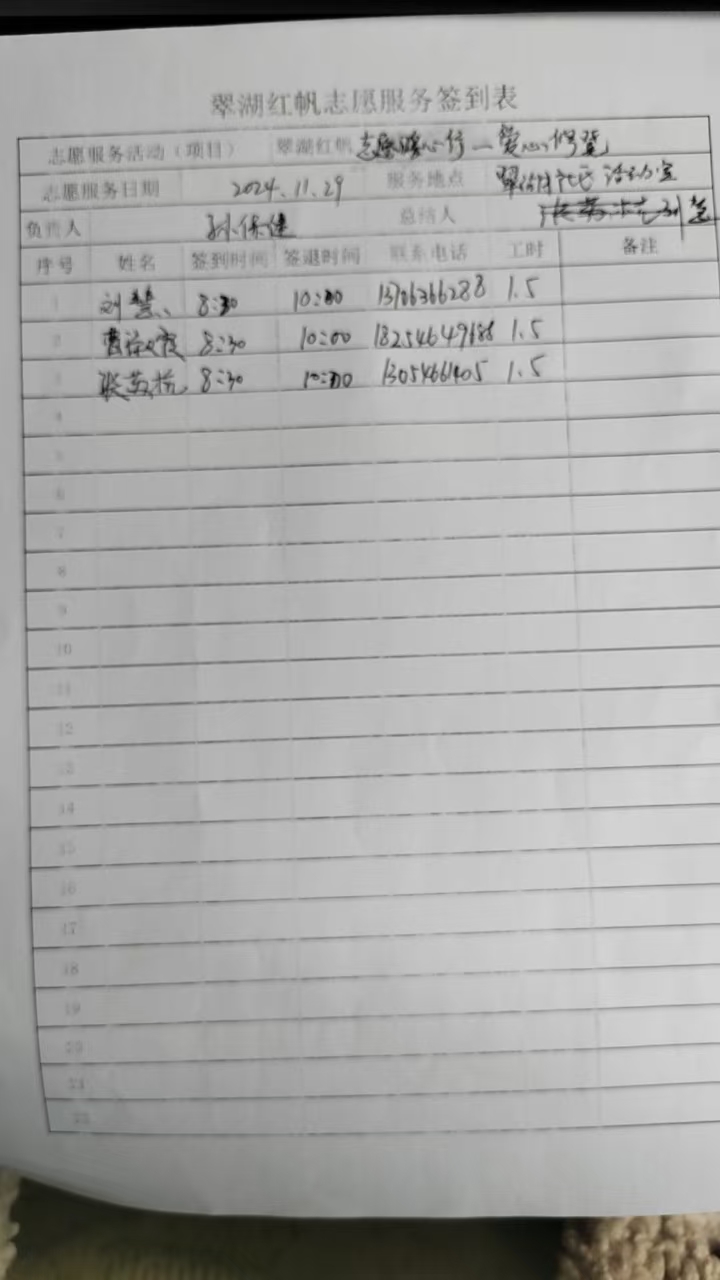 翠湖红帆志愿服务签到表
志愿服务活动（项目） 翠湖红帆志愿暖心行—爱心修凳
志愿服务日期 2024.11.29 服务地点 活动室
负责人 孙保健 总结人
序号 姓名 签到时间 签退时间 联系电话 工时 备注
1 刘慧 8:30 10:00 13706366288 1.5
2 8:30 10:00 18254649686 1.5
3 8:30 10:00 1305466405 1.5
4
5
6
7
8
9
10
11
12
13
14
15
16
17
18
19
20
21
22